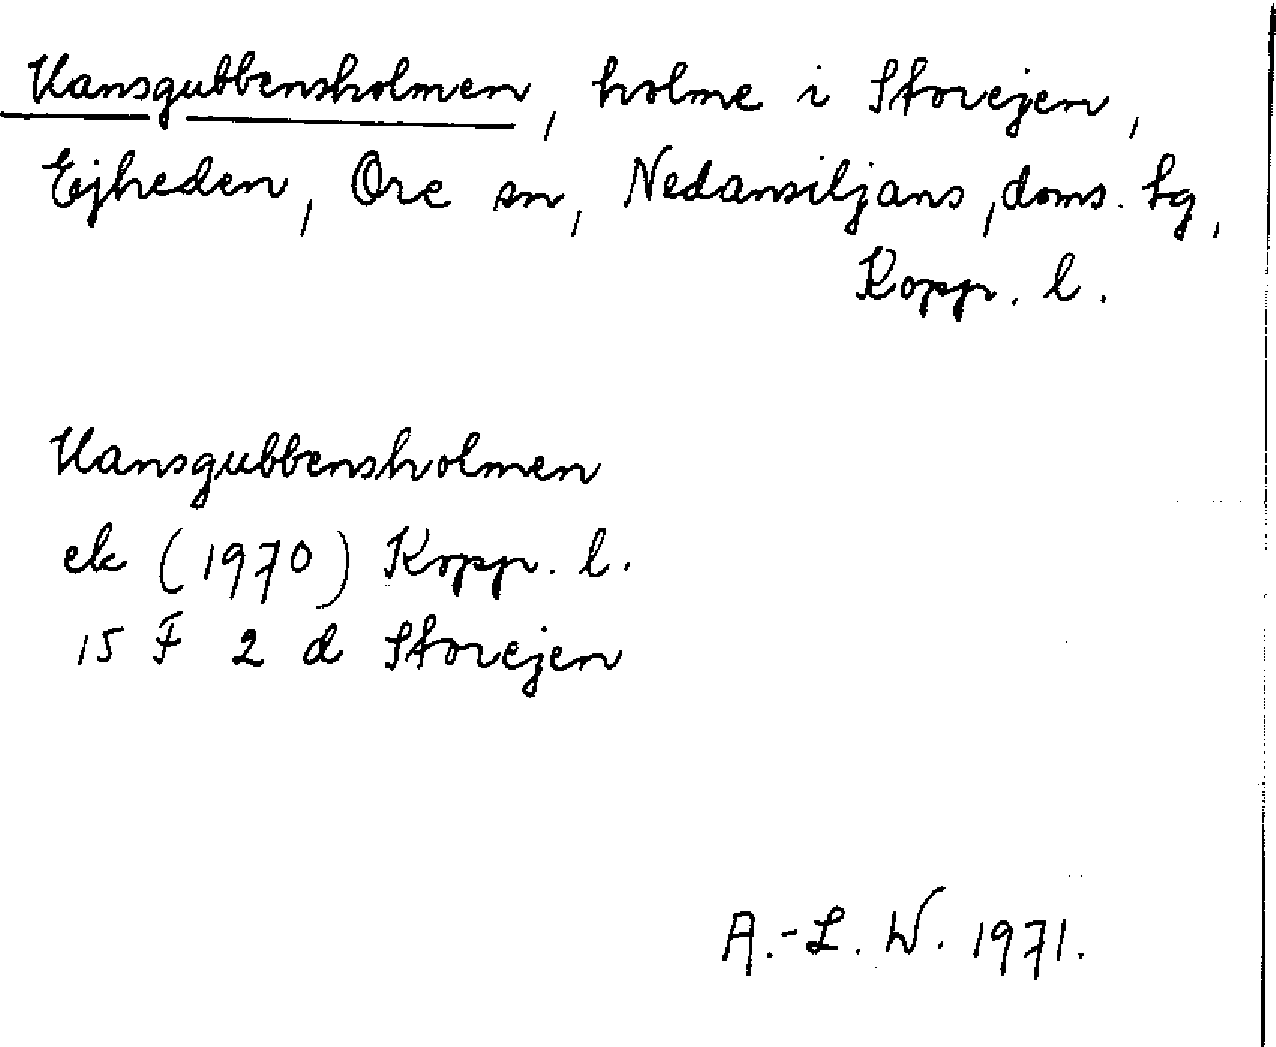 Hansgubbensholmen, holme i Storejen,
Ejheden, Ore sn, Nedansiljans, doms. tg,
Kopp. l.
Hansgubbensholmen
ek (1970) Kopp. l.
15 F 2 d Storejen
A.-L. W. 1971.